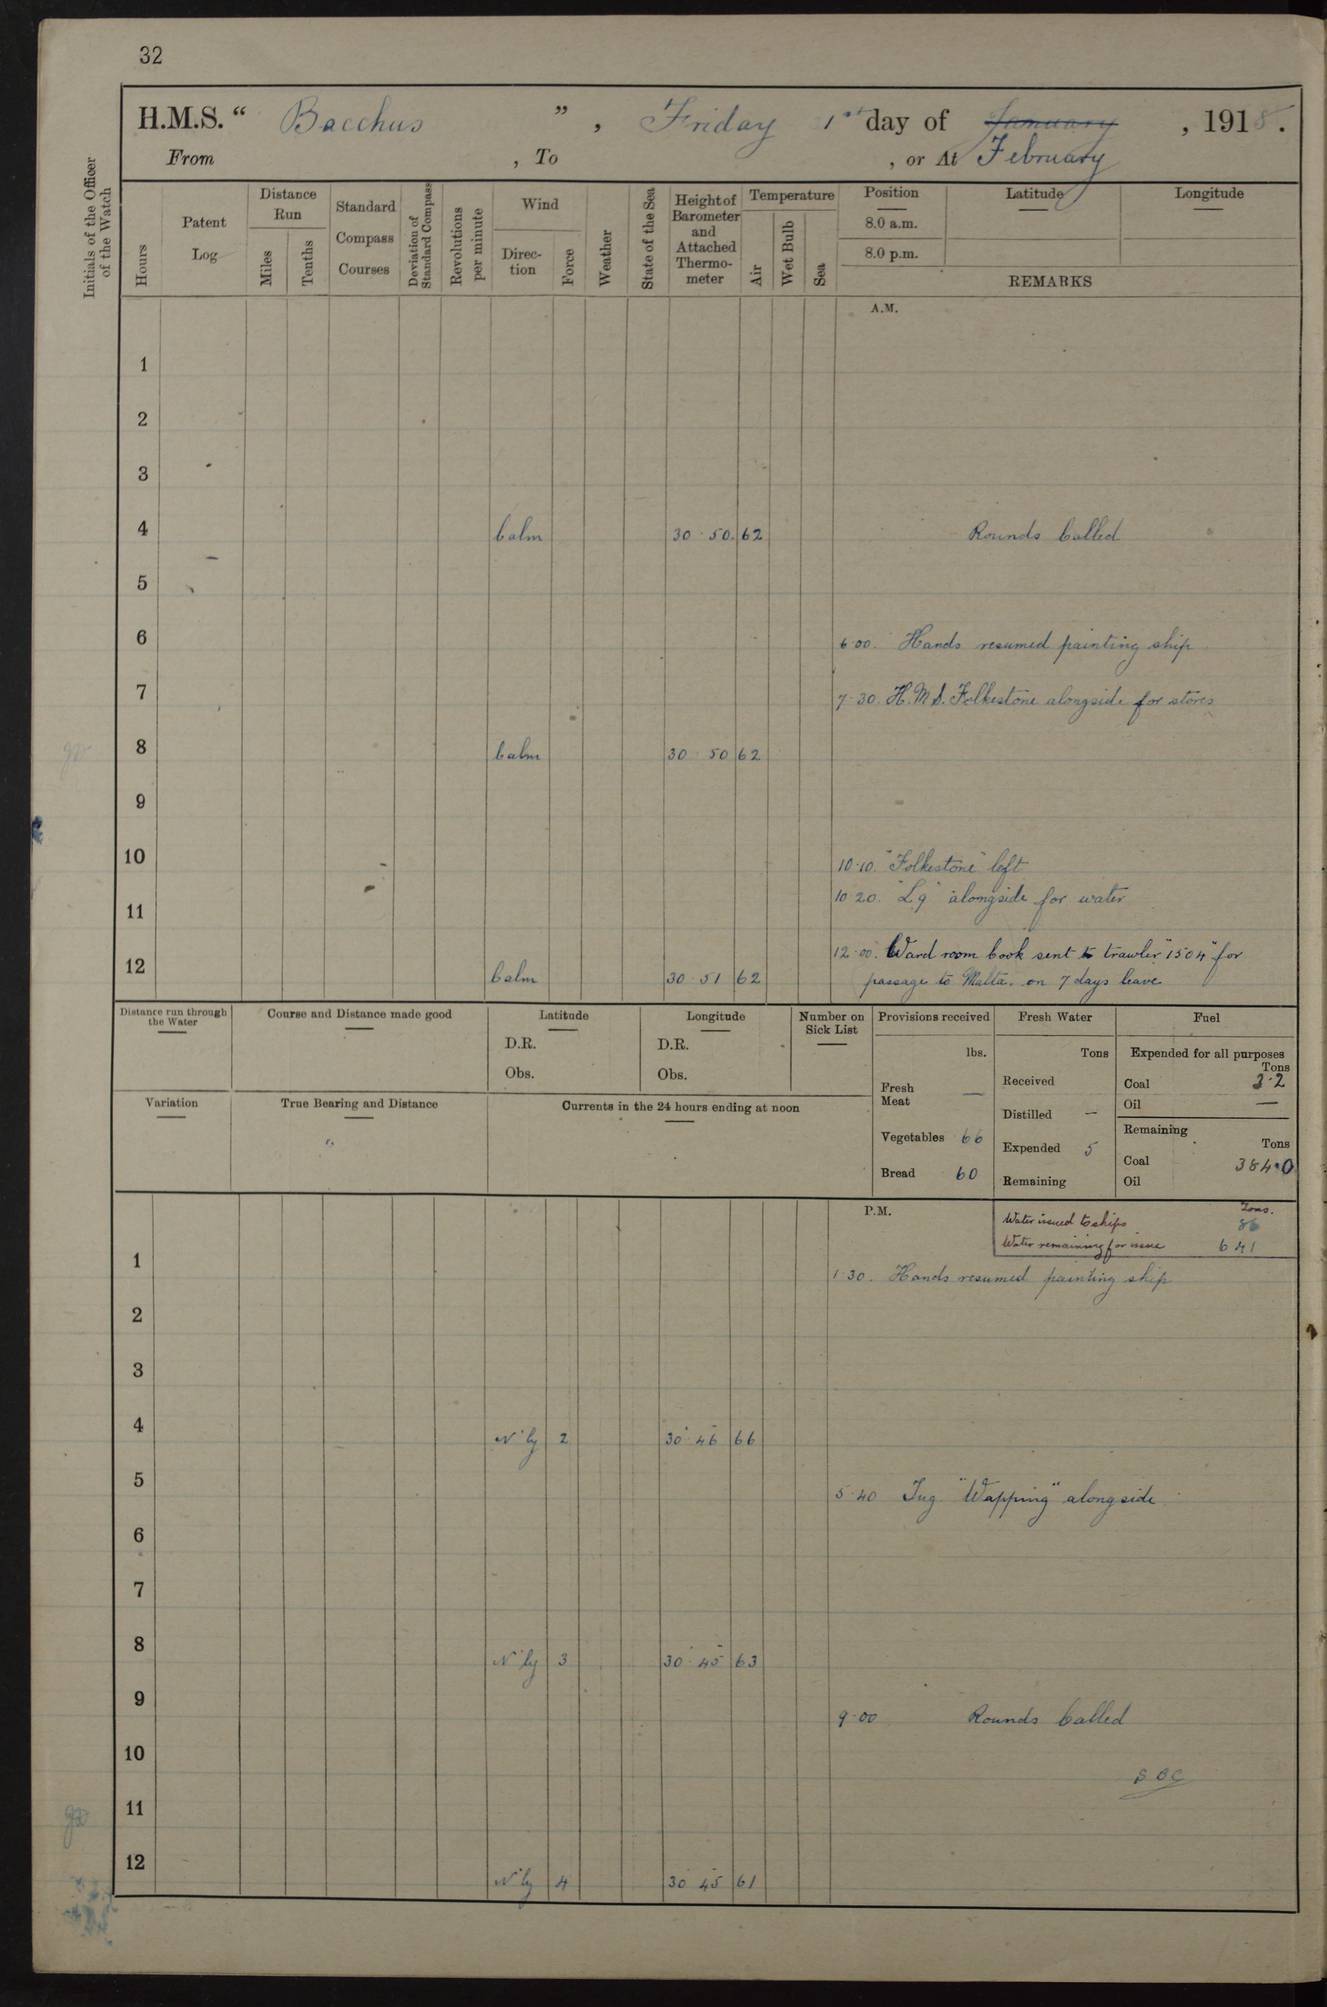 32
H.M.S. “ Bacchus ” , Friday 1st day of January , 1918 .
From , To , or At February
Initials of the Officer of the Watch
Hours
Patent Log
Distance Run
Miles
Tenths
Standard Compass Courses
Deviation of Standard Compass
Revolutions per minute
Wind
Direction
Force
Weather
State of the Sea
Height of Barometer and Attached Thermometer
Temperature
Air
Wet Bulb
Sea
Position Latitude Longitude
8.0 a.m.
8.0 p.m.
REMARKS
A.M.
1
2
3
4 Calm 30·50 62 Rounds Called
5
6 6·00. Hands resumed painting ship
7 7-30. H.M.S. Folkestone alongside for stores
8 Calm 30·50 62
9
10 10·10. "Folkestone" left
10 20. "L9" alongside for water
11
12·00. Ward room Cook sent to trawler "1504" for
12 Calm 30·51 62 passage to Malta. on 7 days leave
Distance run through the Water
Course and Distance made good
Latitude
D.R.
Obs.
Longitude
D.R.
Obs.
Number on Sick List
Provisions received
lbs.
Fresh Meat —
Vegetables 66
Bread 60
Fresh Water
Tons
Received
Distilled —
Expended 5
Remaining
Fuel
Expended for all purposes
Tons
Coal 3·2
Oil —
Remaining
Tons
Coal 384·0
Oil
Variation
True Bearing and Distance
Currents in the 24 hours ending at noon
P.M.
Tons.
Water issued to ships 86
Water remaining for issue 641
1 1·30. Hands resumed painting ship
2
3
4 N'ly 2 30·46 66
5 5·40 Tug "Wapping" alongside
6
7
8 N'ly 3 30·45 63
9 9·00 Rounds Called
10 S B C
11
12 N'ly 4 30 45 61